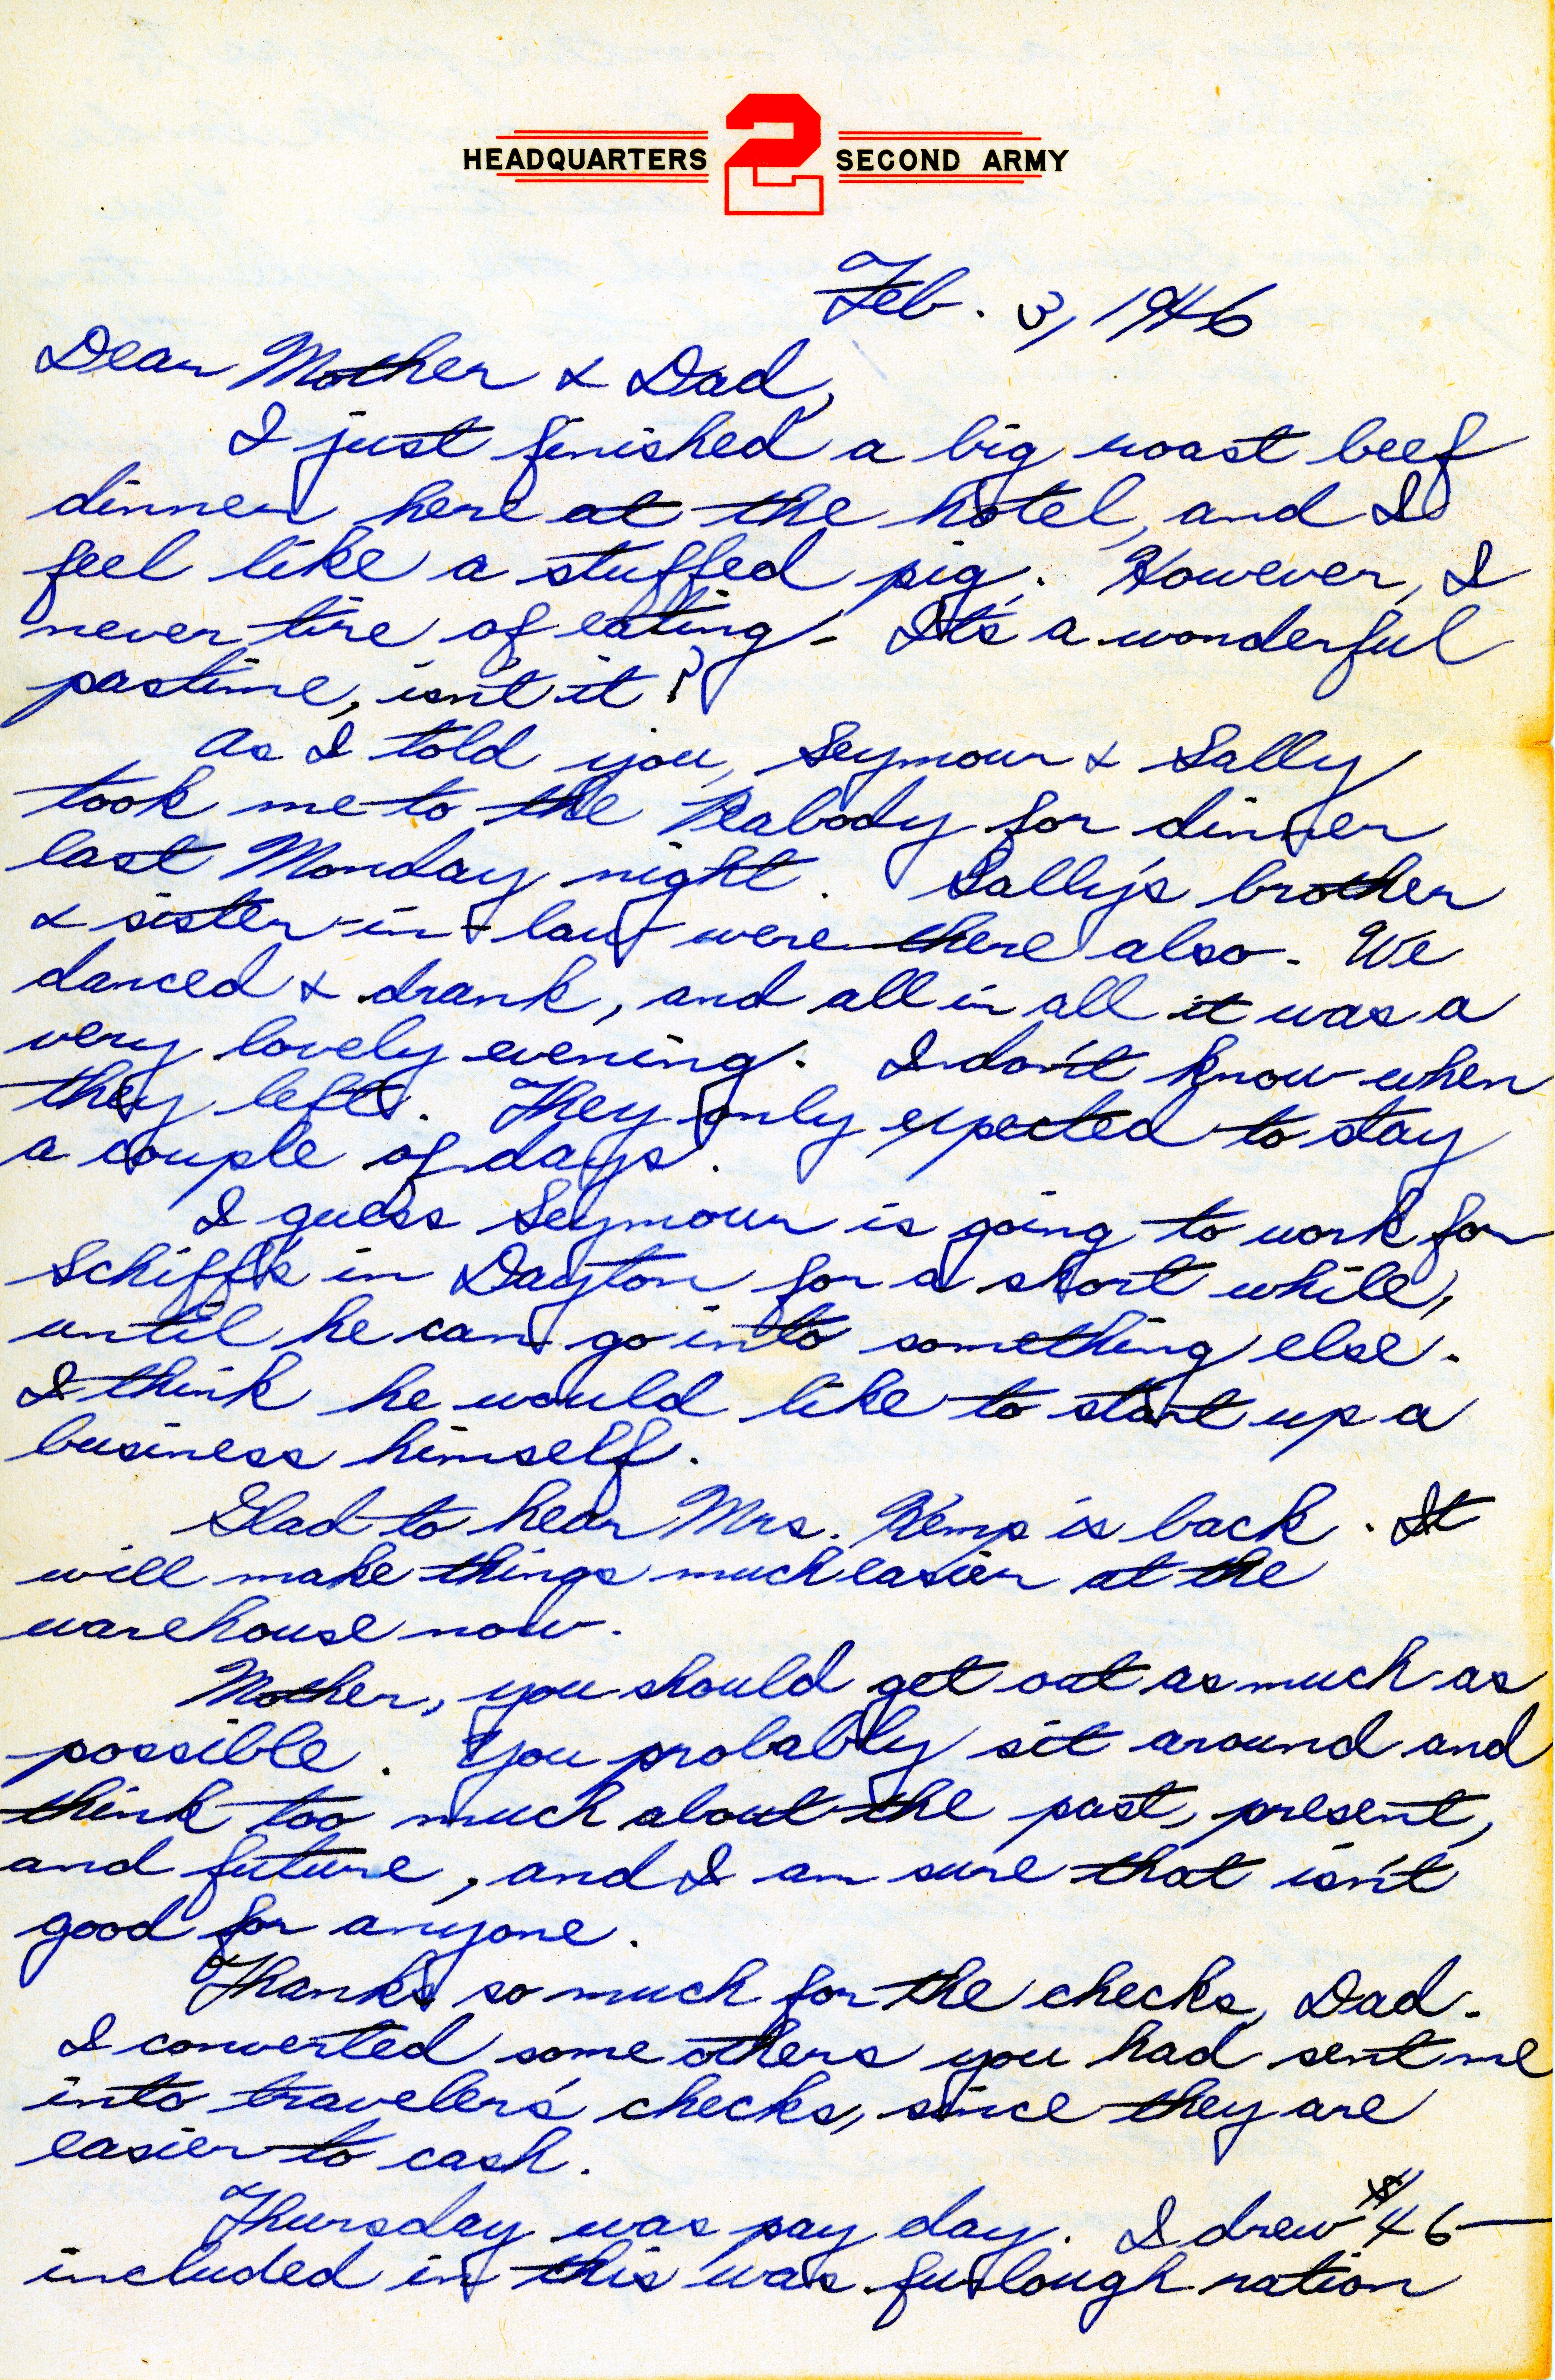 HEADQUARTERS 2 SECOND ARMY
Feb. 3, 1946
Dear Mother & Dad,
I just finished a big roast beef
dinner here at the hotel, and I
feel like a stuffed pig. However, I
never tire of eating - It's a wonderful
pastime, isn't it?
As I told you, Seymour & Sally
took me to the Peabody for dinner
last Monday night. Sally's brother
& sister-in-law were there also. We
danced & drank, and all in all it was a
very lovely evening. I don't know when
they left. They only expected to stay
a couple of days.
I guess Seymour is going to work for
Schiff's in Dayton for a short while,
until he can go into something else.
I think he would like to start up a
business himself.
Glad to hear Mrs. Kemp is back. It
will make things much easier at the
warehouse now.
Mother, you should get out as much as
possible. You probably sit around and
think too much about the past, present,
and future, and I am sure that isn't
good for anyone.
Thanks so much for the checks, Dad.
I converted some others you had sent me
into traveler's checks, since they are
easier to cash.
Thursday was pay day. I drew $46—
included in this was furlough ration